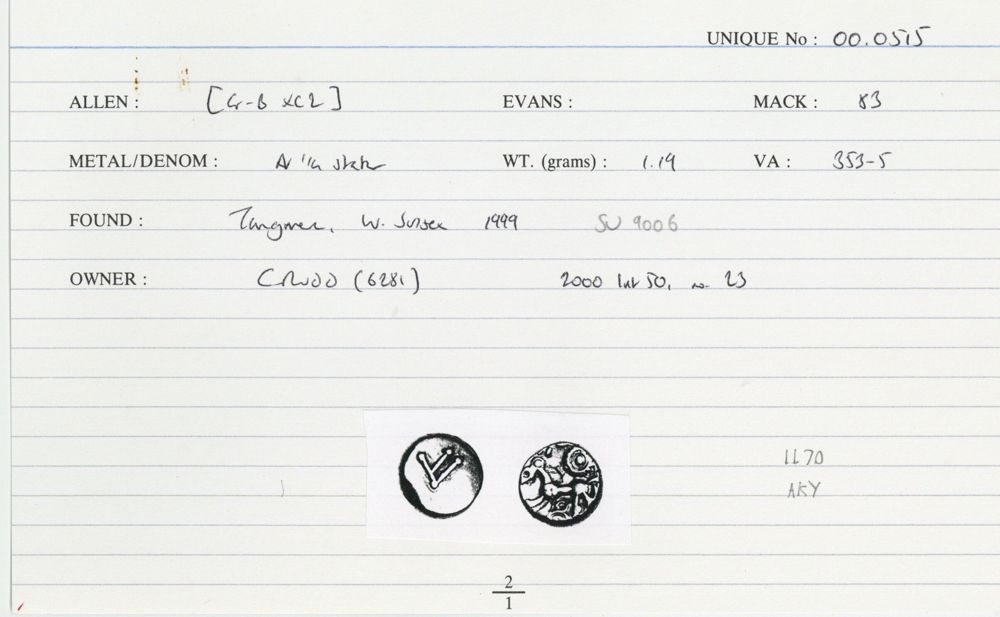 UNIQUE No : 00.0515
ALLEN : EVANS : MACK : 83
METAL/DENOM : WT. (grams) : 1.19 VA : 353-5
FOUND : Tangmere, W. Sussex 1999 SU 9006
OWNER : (6281) 2000 50, no. 23
LL70
AKY
2
1